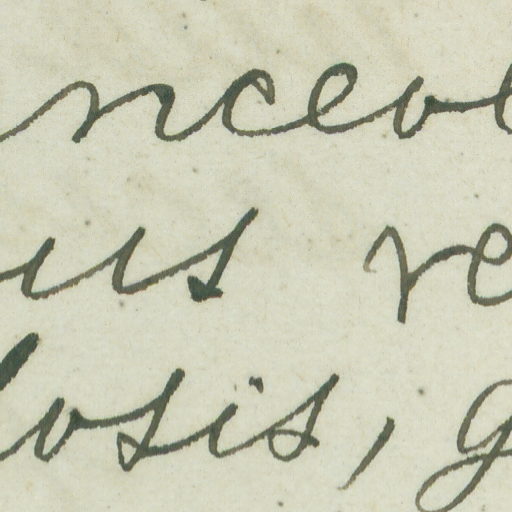 nceve
us re
losis, g